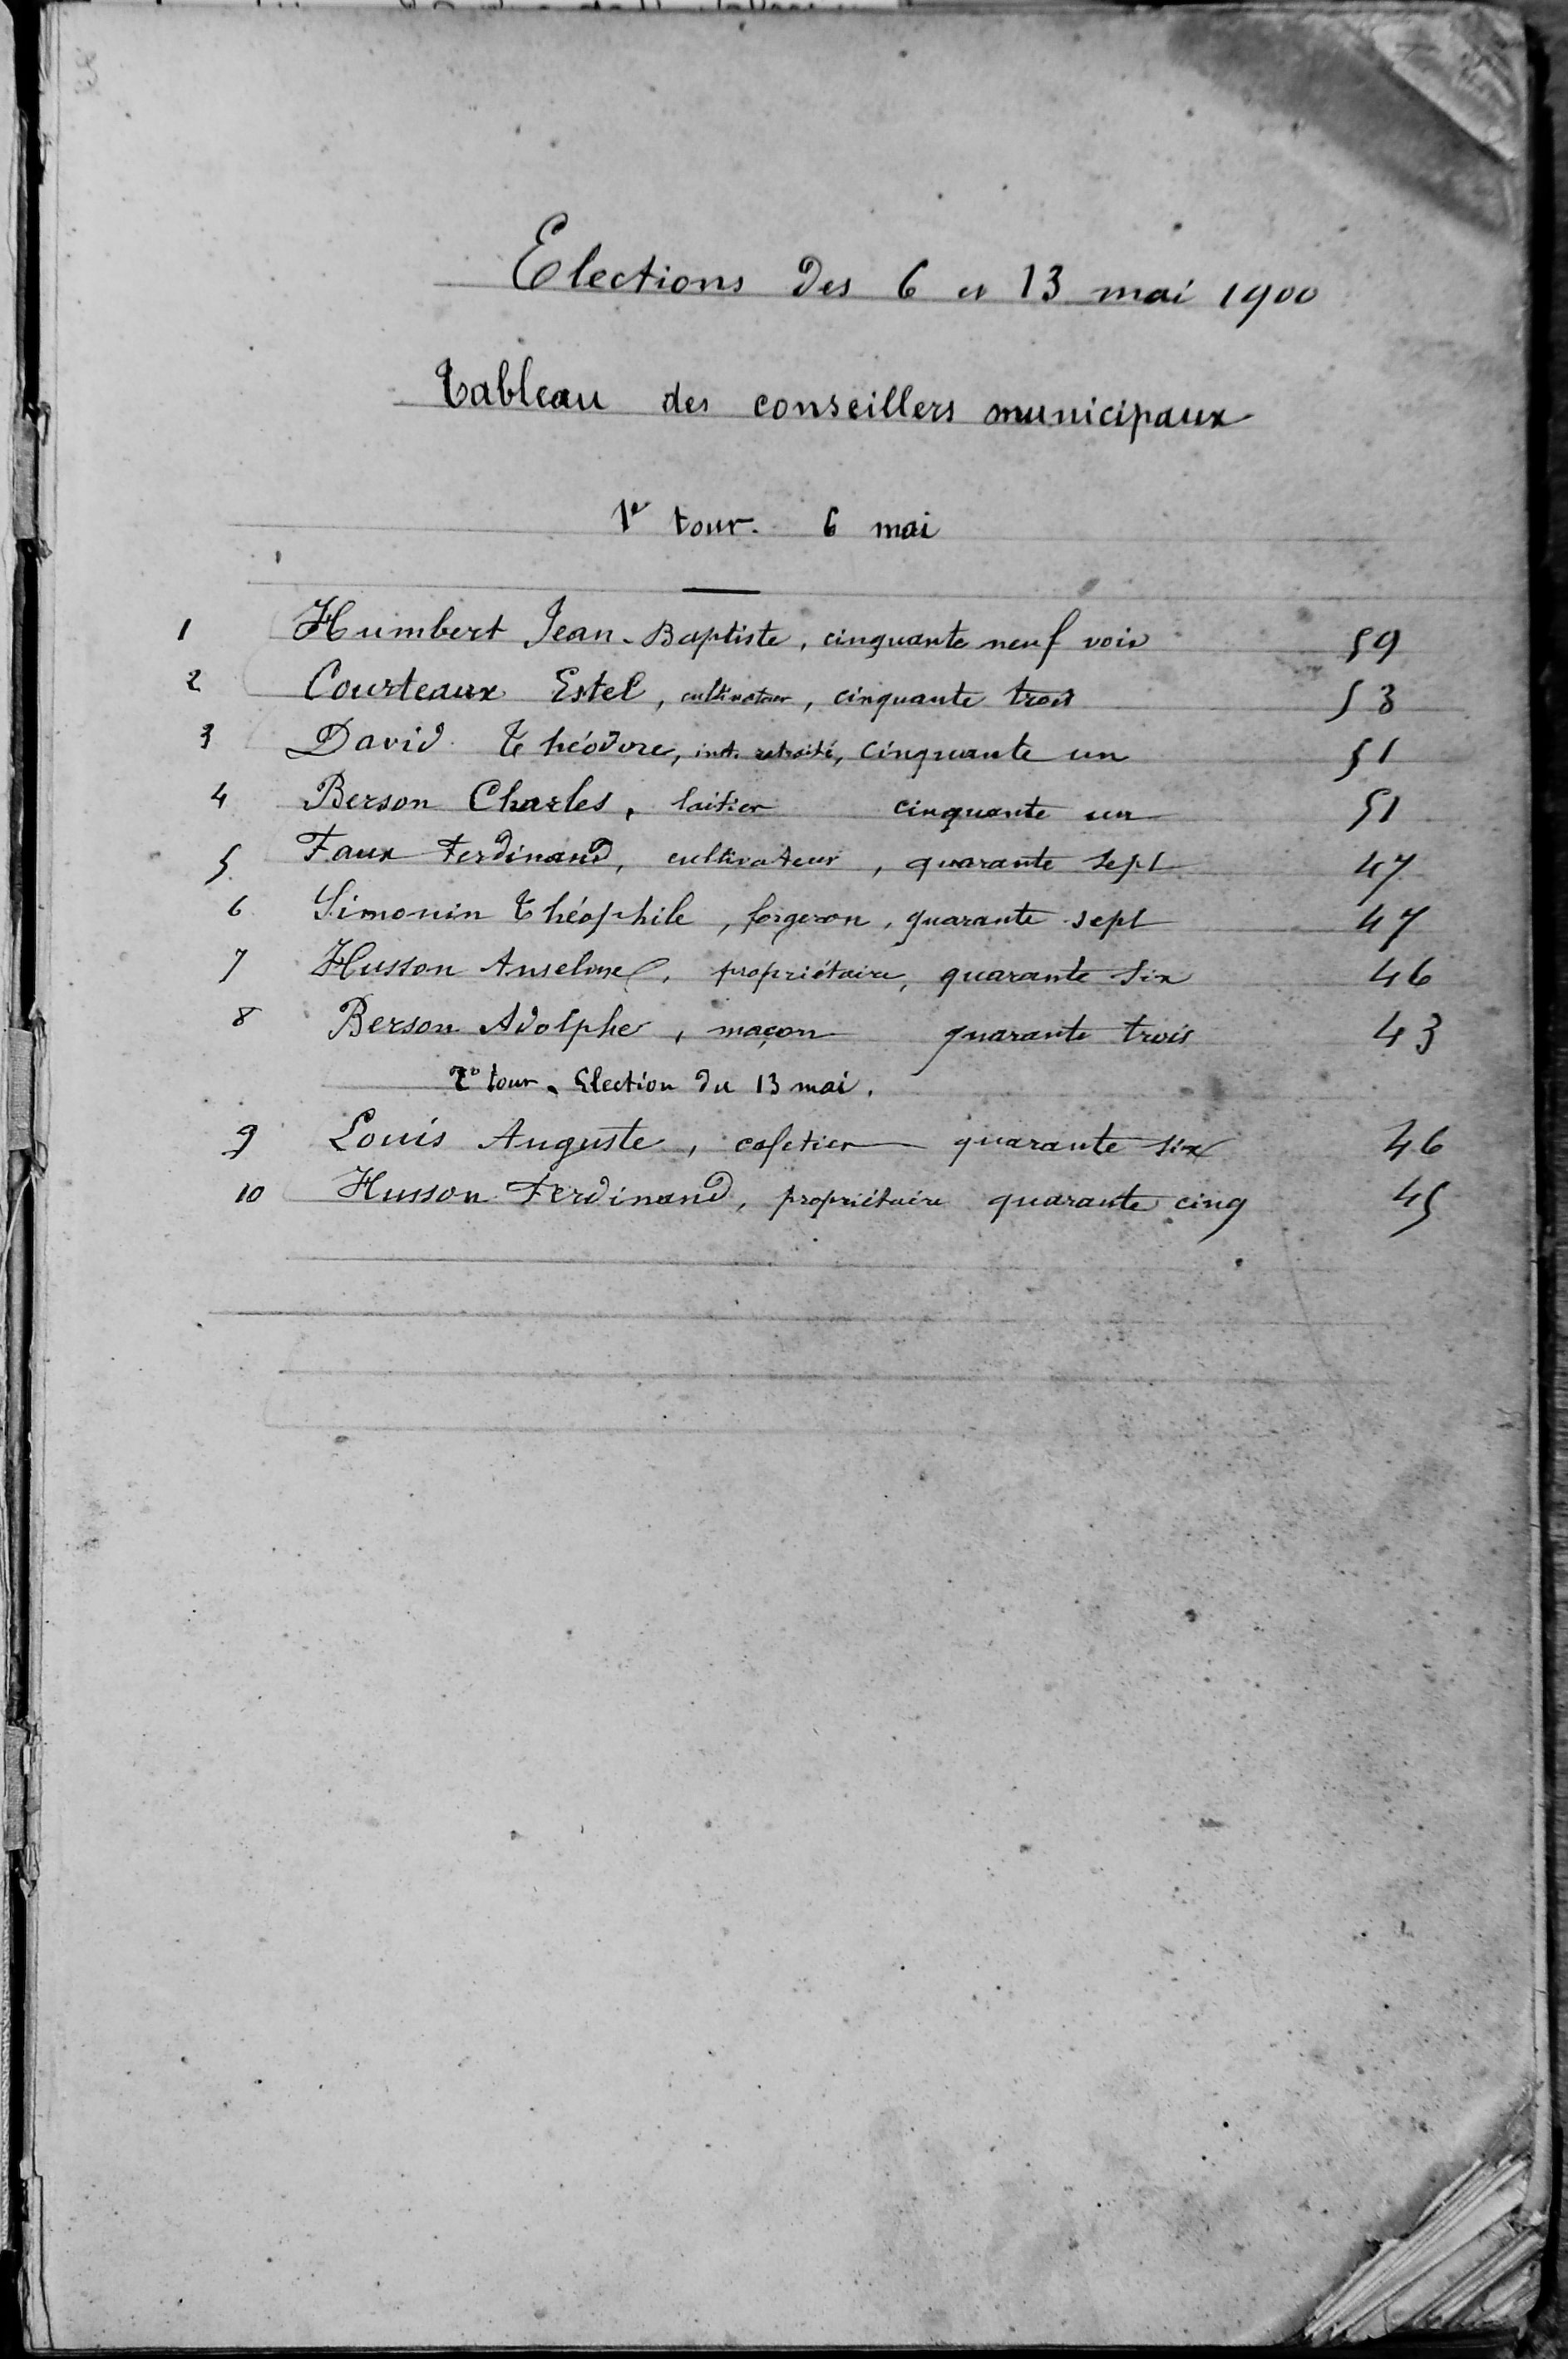 Elections des 6 et 13 mai 1900
Tableau des conseillers municipaux
1er tour. 6 mai
1 Humbert Jean-Baptiste, cinquante neuf voix 59
2 Courteaux Estel, cultivateur, cinquante trois 53
3 David Théodore, inst. retraité, cinquante un 51
4 Berson Charles, laitier cinquante un 51
5 Faux Ferdinand, cultivateur, quarante sept 47
6 Simonin Théophile, forgeron, quarante sept 47
7 Husson Anselme, propriétaire, quarante six 46
8 Berson Adolphe, maçon quarante trois 43
2e tour. Election du 13 mai.
9 Louis Auguste, cafetier quarante six 46
10 Husson Ferdinand, propriétaire quarante cinq 45